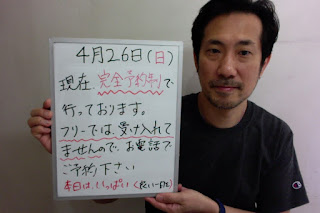 4月26日(日)
現在、完全予約制で
行っております。
フリーでは、受け入れて
ませんので、お電話で
ご予約下さい
本日は、いっぱい